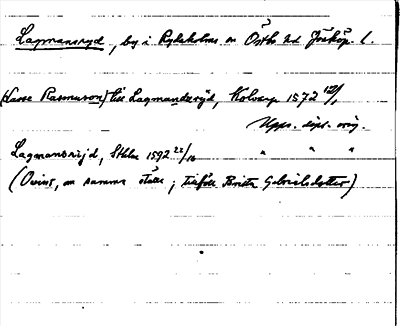 Lagmansryd, by i Rydaholms sn Östbo hd Jönköp. l.
(Lasse Rasmuson) till Lagmanderijd, 1572 12/1
Upps. dipl. orig.
Lagmansrijd, Sthlm 1592 22/10 " " "
(Ovisst, om samma ställe; tillföll Britta Gabrielsdotter)